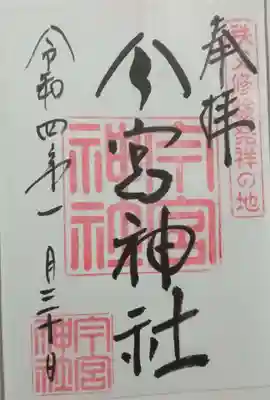 秩父修験発祥の地
奉拝
今宮神社
今宮神社
令和四年一月三十日
今宮神社